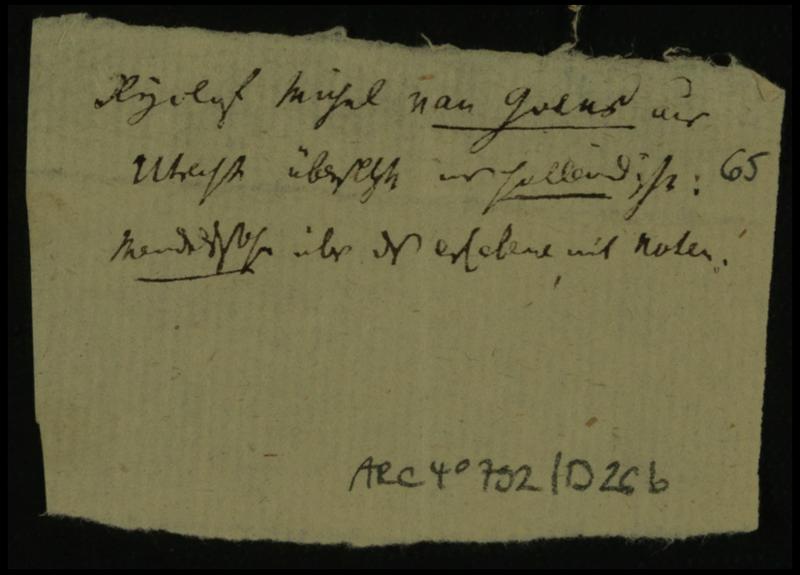 Ryclof Michel van Goens aus
Utrecht übersetzte ins holländische: 65
Mendelssohn über das erhabene mit Noten.
ARC 4° 792/D26b